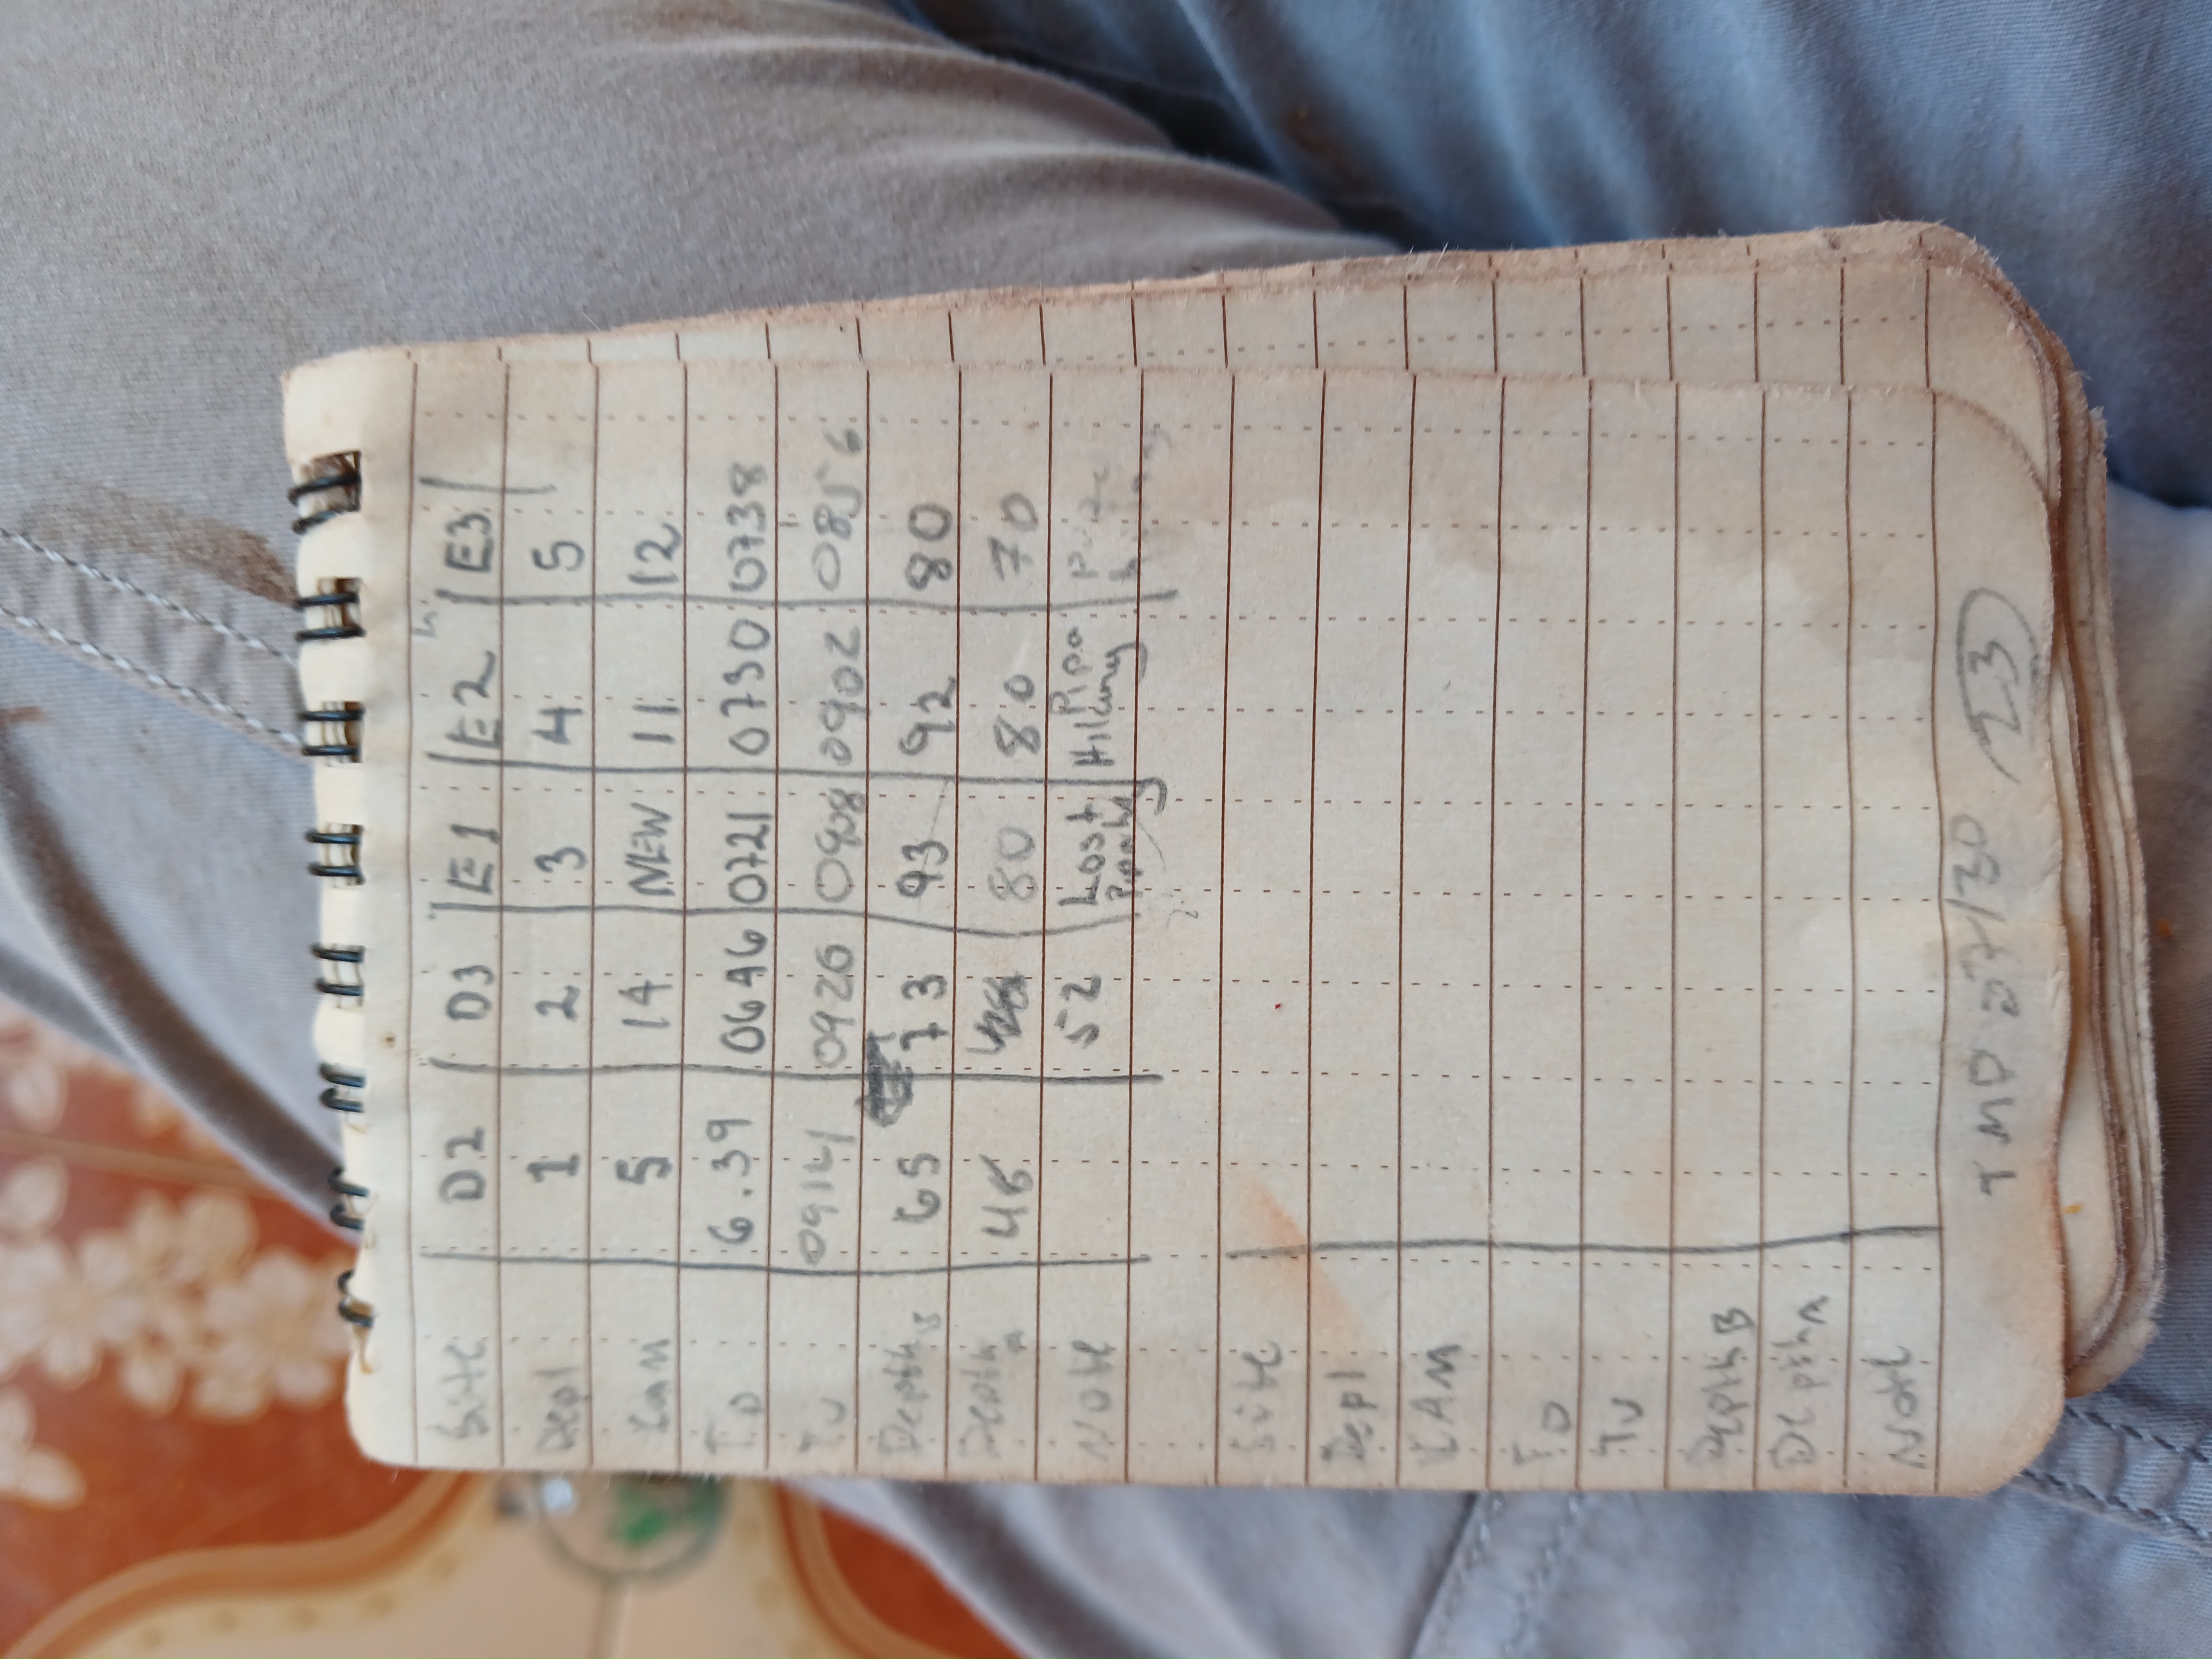 Site D2 D3 E1 E2 E3
Depl 1 2 3 4 5
KAM 5 14 NEW 11 12
TD 6.39 0646 0721 0730 0738
TU 0914 0920 0908 0902 0856
Depth B 65 73 93 92 80
Depth A 80 80 70
Note 52 Lost Pipa
Site
Depl
KAM
TD
TU
Depth B
Depth A
Note
TMP 27/30 23